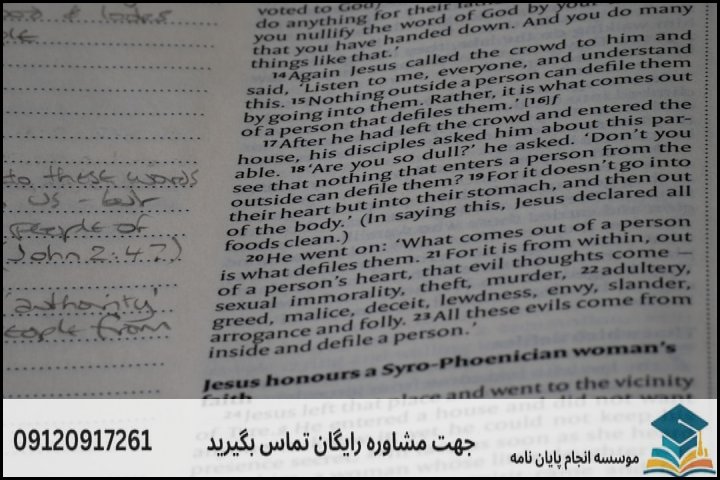 voted to God)
do anything for their
you nullify the word of God by your
that you have handed down. And you do many
things like that.'
14Again Jesus called the crowd to him and
said, 'Listen to me, everyone, and understand
this. 15Nothing outside a person can defile them
by going into them. Rather, it is what comes out
of a person that defiles them.' [16]f
17After he had left the crowd and entered the
house, his disciples asked him about this par-
able. 18'Are you so dull?' he asked. 'Don't you
see that nothing that enters a person from the
outside can defile them? 19For it doesn't go into
their heart but into their stomach, and then out
of the body.' (In saying this, Jesus declared all
foods clean.)
20He went on: 'What comes out of a person
is what defiles them. 21For it is from within, out
of a person's heart, that evil thoughts come –
sexual immorality, theft, murder, 22adultery,
greed, malice, deceit, lewdness, envy, slander,
arrogance and folly. 23All these evils come from
inside and defile a person.'
Jesus honours a Syro-Phoenician woman's
faith
24Jesus left that place and went to the vicinity
of He entered a house and did not want
could not keep
presence as soon as she
a woman whose
to these words
us – but
people of
John 2:47)
'authority'
people from
09120917261
جهت مشاوره رایگان تماس بگیرید
موسسه انجام پایان نامه